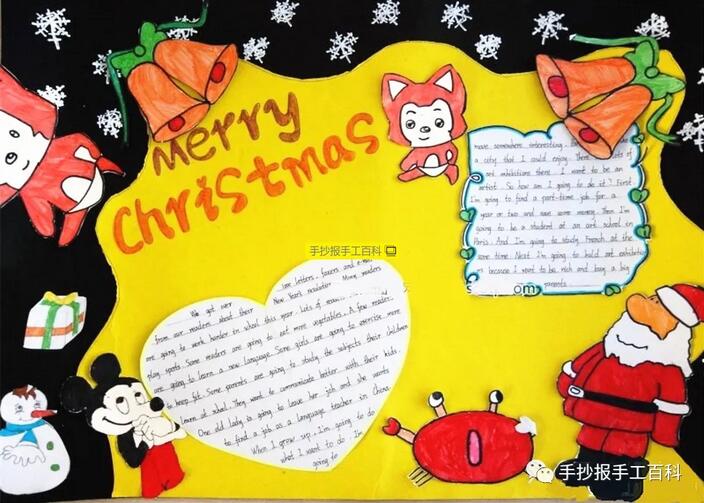 Merry
Christmas
手抄报手工百科
move somewhere interesting.
a city that I could enjoy. There
art exhibitions there. I want to be an
artist. So how am I going to do it? First
I'm going to find a part-time job for a
year or two and save some money. Then I'm
going to be a student at an art school in
Paris. And I'm going to study French at the
same time. Next I'm going to hold art exhibitions
because I want to be rich and buy a big
parents
om
love letters, faxers and e-mai
We got over New Years resolution. Many readers
from our readers about their
are going to work harder in school this year. Lots of
play sports. Some readers are going to eat more vegetables. A few reader
are going to learn a new language. Some girls are going to exercise more
to keep fit. Some parents are going to study the subjects their children
learn at school. They want to communicate better with their kids.
One old lady is going to leave her job and she wants
to find a job as a language teacher in China.
When I grow up, I'm going to do
what I want to do. I'm
going to
手抄报手工百科